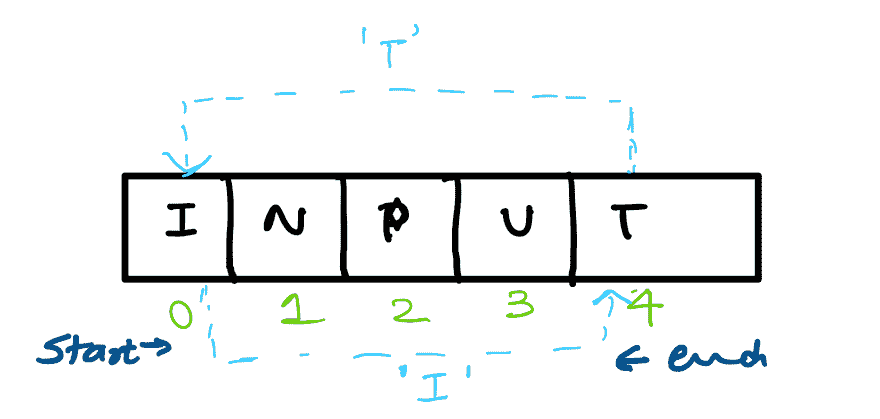 'T'
I N P U T
0 1 2 3 4
Start → ← end
'I'